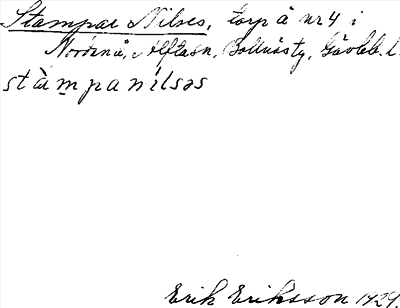 Stampar Nilses, torp å nr 4 i
Nordanå, Alfta sn, Bollnästg, Gävleb. l.
stàmpanílsəs
Erik Eriksson 1929.